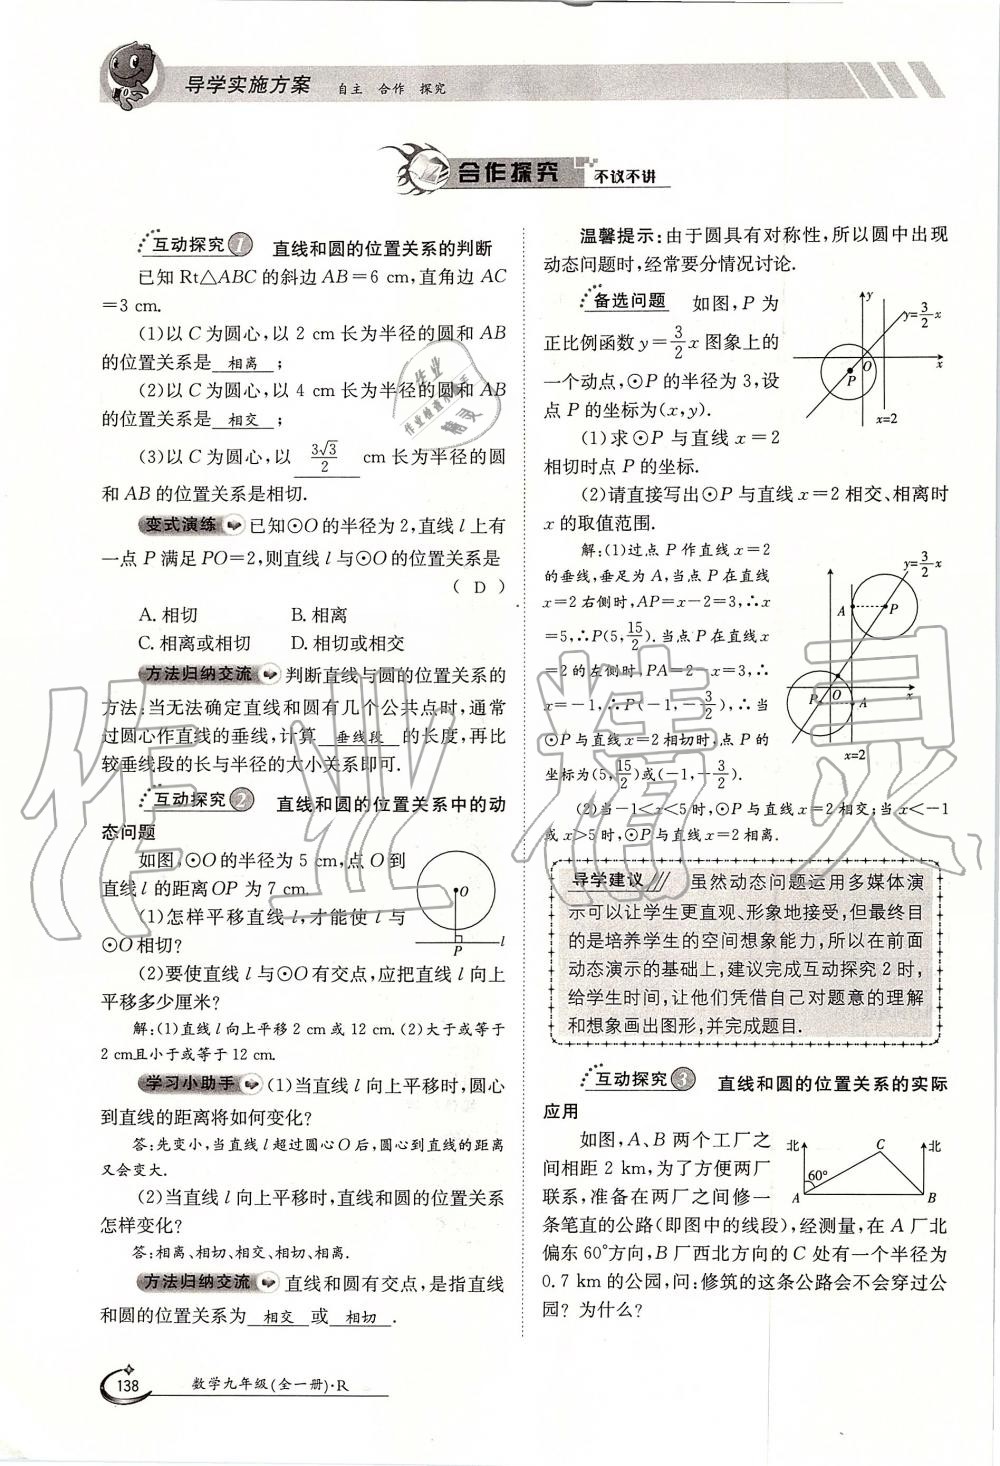 导学实施方案 自主 合作 探究
合作探究 不议不讲
互动探究1 直线和圆的位置关系的判断
已知 Rt△ABC 的斜边 AB=6 cm,直角边 AC
=3 cm.
(1)以 C 为圆心,以 2 cm 长为半径的圆和 AB
的位置关系是 相离 ;
(2)以 C 为圆心,以 4 cm 长为半径的圆和 AB
的位置关系是 相交 ;
(3)以 C 为圆心,以 3√3/2 cm 长为半径的圆
和 AB 的位置关系是相切.
变式演练 已知⊙O 的半径为 2,直线 l 上有
一点 P 满足 PO=2,则直线 l 与⊙O 的位置关系是
( D )
A. 相切 B. 相离
C. 相离或相切 D. 相切或相交
方法归纳交流 判断直线与圆的位置关系的
方法:当无法确定直线和圆有几个公共点时,通常
过圆心作直线的垂线,计算 垂线段 的长度,再比
较垂线段的长与半径的大小关系即可.
互动探究2 直线和圆的位置关系中的动
态问题
如图,⊙O 的半径为 5 cm,点 O 到
直线 l 的距离 OP 为 7 cm.
(1)怎样平移直线 l,才能使 l 与
⊙O 相切?
O
P
l
(2)要使直线 l 与⊙O 有交点,应把直线 l 向上
平移多少厘米?
解:(1)直线 l 向上平移 2 cm 或 12 cm. (2)大于或等于
2 cm且小于或等于 12 cm.
学习小助手 (1)当直线 l 向上平移时,圆心
到直线的距离将如何变化?
答:先变小,当直线 l 超过圆心 O 后,圆心到直线的距离
又会变大.
(2)当直线 l 向上平移时,直线和圆的位置关系
怎样变化?
答:相离、相切、相交、相切、相离.
方法归纳交流 直线和圆有交点,是指直线
和圆的位置关系为 相交 或 相切 .
温馨提示:由于圆具有对称性,所以圆中出现
动态问题时,经常要分情况讨论.
备选问题 如图,P 为
正比例函数 y=3/2 x 图象上的
一个动点,⊙P 的半径为 3,设
点 P 的坐标为(x,y).
(1)求⊙P 与直线 x=2
相切时点 P 的坐标.
y
y=3/2 x
O
x
P
x=2
(2)请直接写出⊙P 与直线 x=2 相交、相离时
x 的取值范围.
解:(1)过点 P 作直线 x=2
的垂线,垂足为 A,当点 P 在直线
x=2 右侧时,AP=x-2=3,∴x
=5,∴P(5,15/2).当点 P 在直线 x
=2 的左侧时,PA=2-x=3,∴
x=-1,∴P(-1,-3/2),∴当
⊙P 与直线 x=2 相切时,点 P 的
坐标为(5,15/2)或(-1,-3/2).
y=3/2 x
A
P
O
x
A
x=2
(2)当-1<x<5 时,⊙P 与直线 x=2 相交;当 x<-1
或 x>5 时,⊙P 与直线 x=2 相离.
导学建议 虽然动态问题运用多媒体演
示可以让学生更直观、形象地接受,但最终目
的是培养学生的空间想象能力,所以在前面
动态演示的基础上,建议完成互动探究 2 时,
给学生时间,让他们凭借自己对题意的理解
和想象画出图形,并完成题目.
互动探究3 直线和圆的位置关系的实际
应用
如图,A、B 两个工厂之
间相距 2 km,为了方便两厂
联系,准备在两厂之间修一
北
60°
A
C
北
B
条笔直的公路(即图中的线段),经测量,在 A 厂北
偏东 60°方向,B 厂西北方向的 C 处有一个半径为
0.7 km 的公园,问:修筑的这条公路会不会穿过公
园? 为什么?
138 数学九年级(全一册)·R
作业精灵